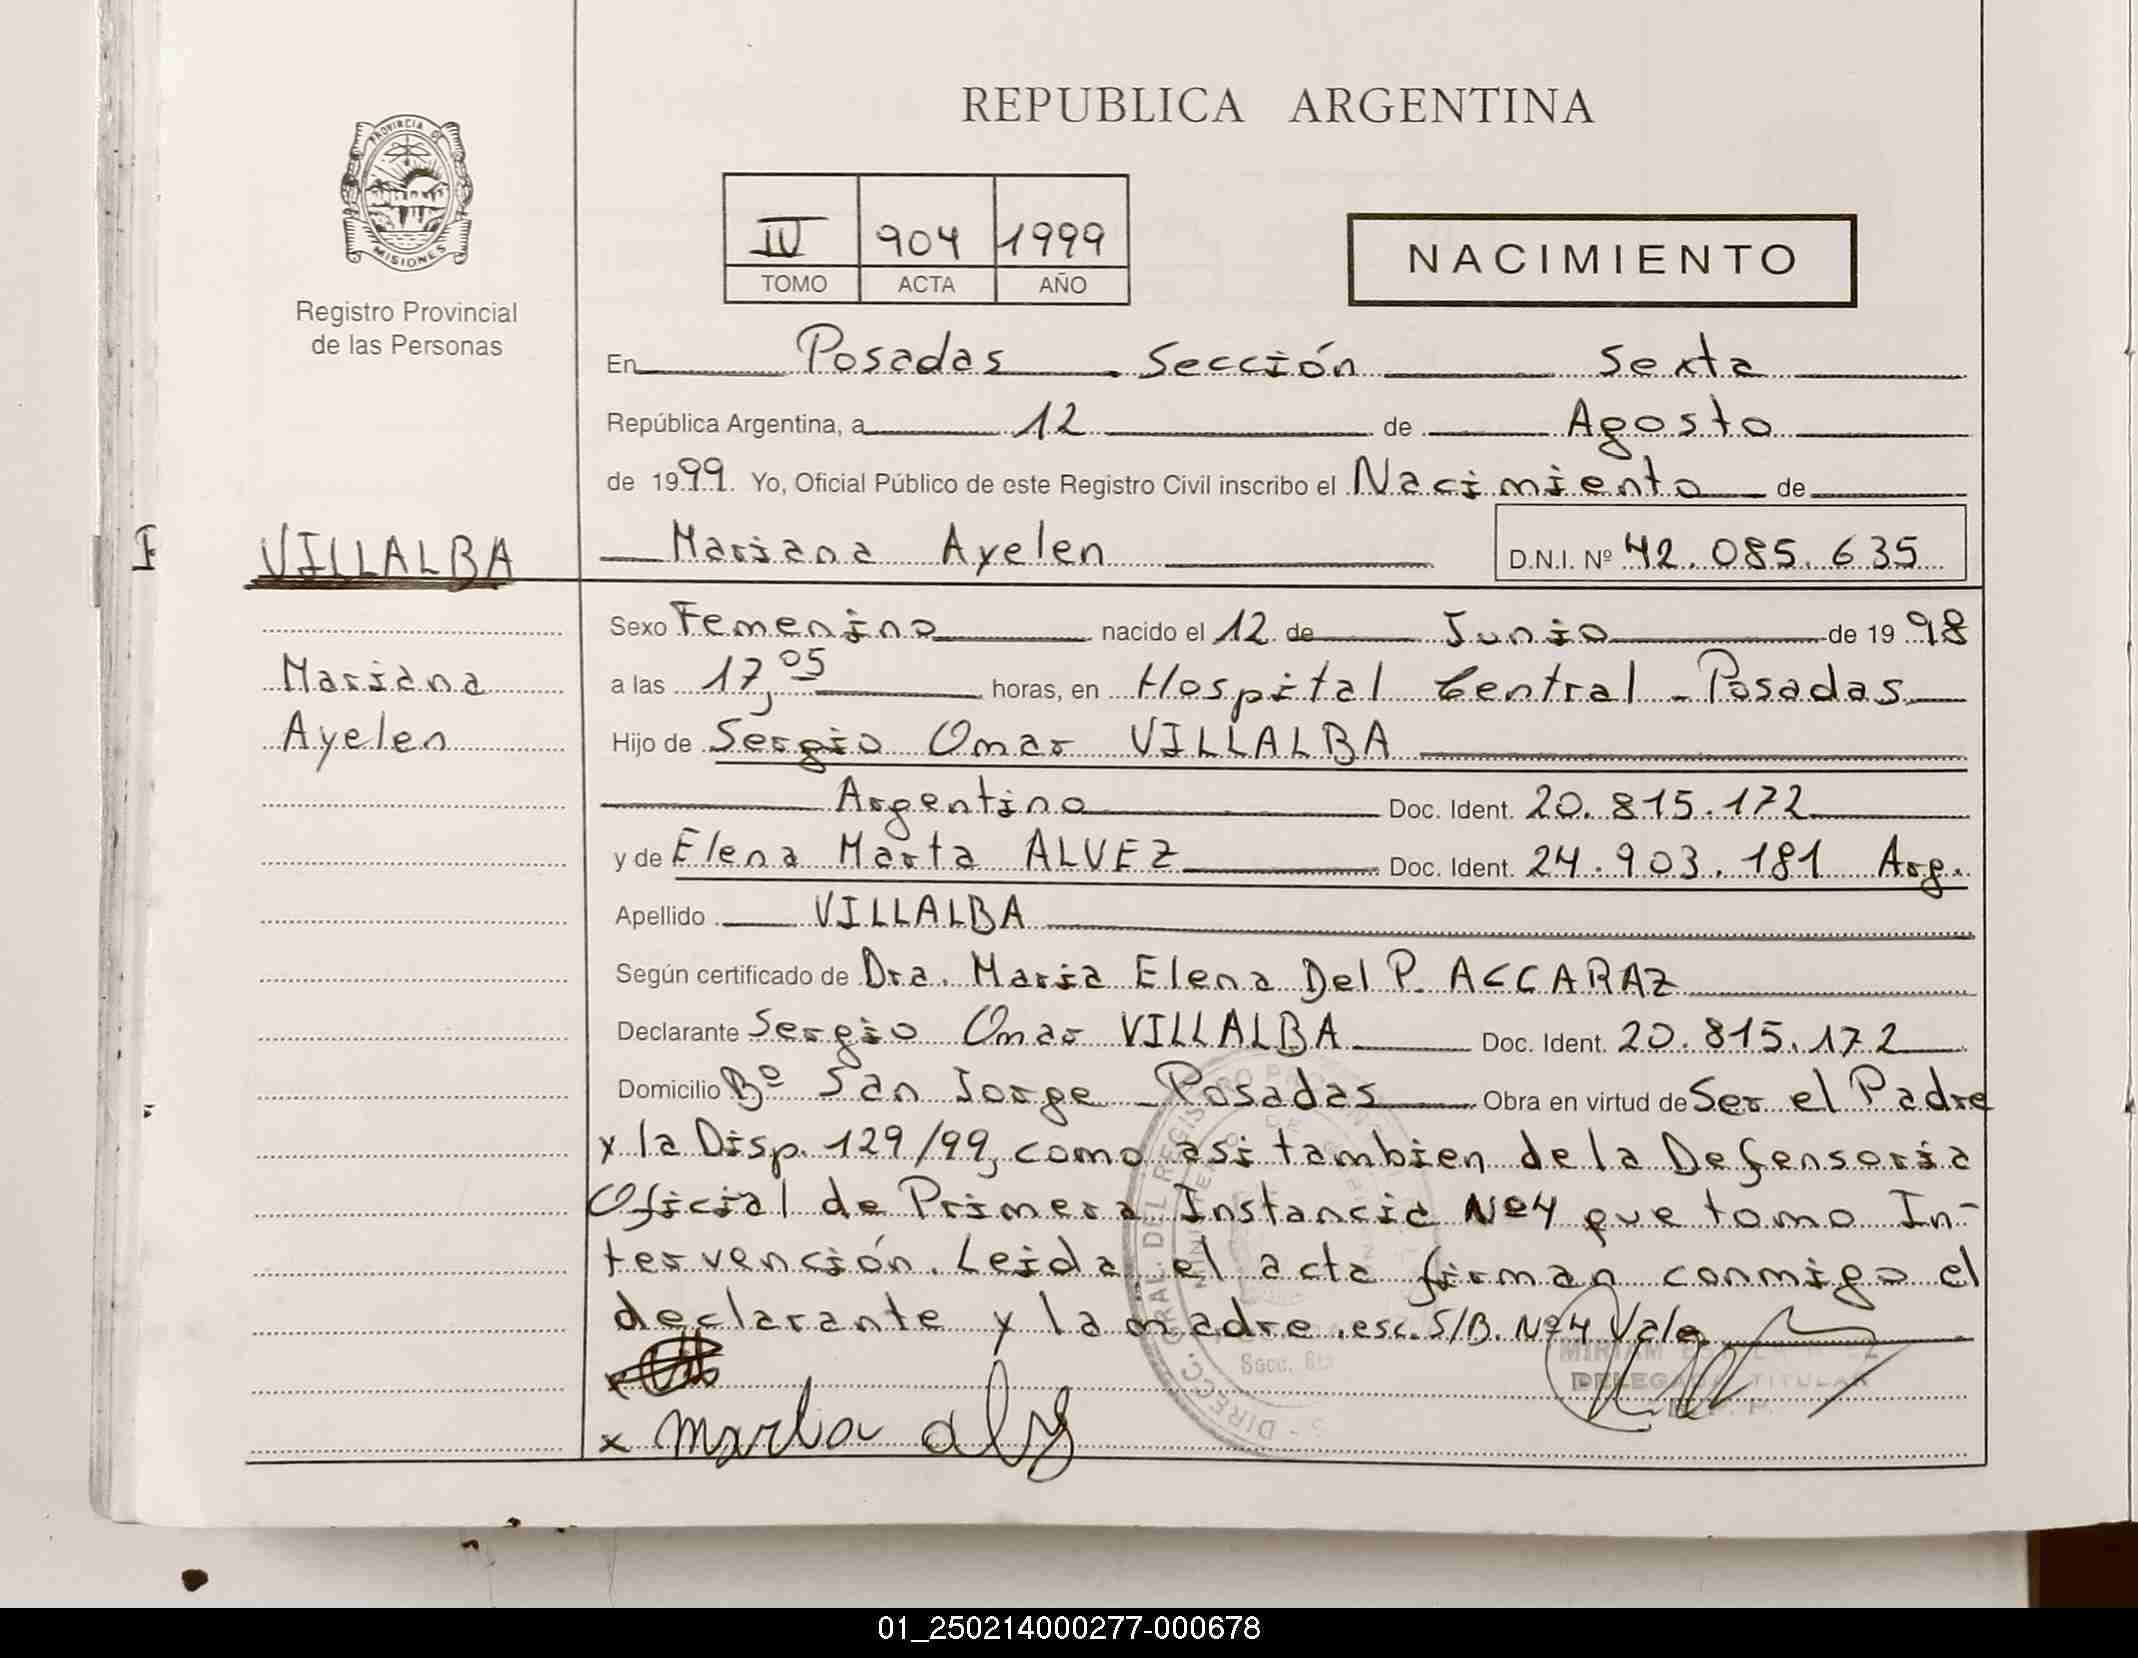 REPUBLICA ARGENTINA
PROVINCIA DE
MISIONES
Registro Provincial
de las Personas
IV 904 1999
TOMO ACTA AÑO
NACIMIENTO
En Posadas - Sección Sexta
República Argentina, a 12 de Agosto
de 1999. Yo, Oficial Público de este Registro Civil inscribo el Nacimiento de
VILLALBA
Mariana Ayelen D.N.I. Nº 42.085.635
Sexo Femenino nacido el 12 de Junio de 1998
Mariana
a las 17,05 horas, en Hospital Central - Posadas
Ayelen
Hijo de Sergio Omar VILLALBA
Argentino Doc. Ident. 20.815.172
y de Elena Marta ALVEZ Doc. Ident. 24.903.181 Arg.
Apellido VILLALBA
Según certificado de Dra. Maria Elena Del P. ACCARAZ
Declarante Sergio Omar VILLALBA Doc. Ident. 20.815.172
Domicilio Bº San Jorge - Posadas Obra en virtud de Ser el Padre
y la Disp. 129/99, como asi tambien de la Defensoria
Oficial de Primera Instancia Nº4 que tomo In-
tervención. Leida el acta firman conmigo el
declarante y la madre. esc. S/B. Nº4 Vale
MIRIAM
DELEGADA TITULAR
Secc. 6ta
DIRECC. GRAL. DEL REGISTRO
x Marta alv
01_250214000277-000678